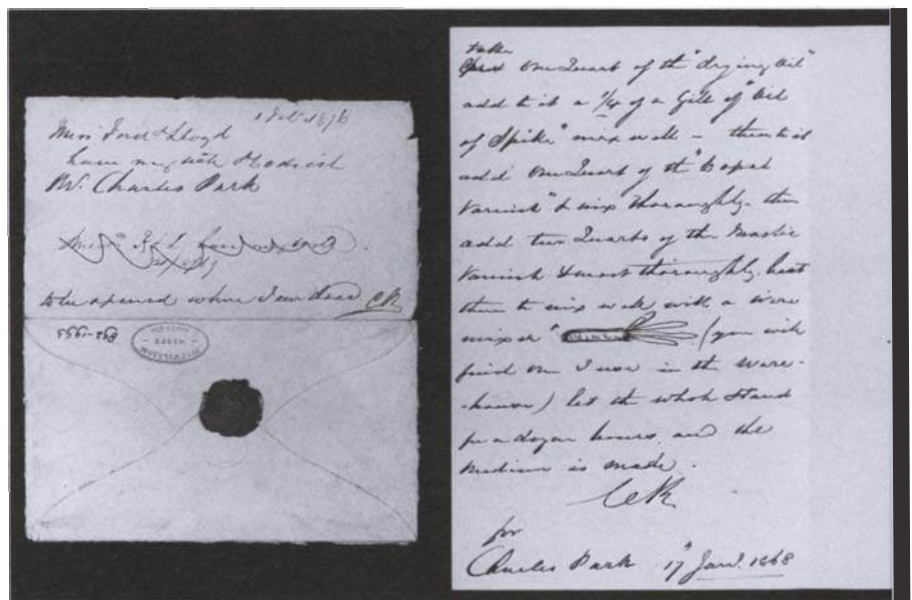 1 Feb 1876
Miss Lloyd
Charles Park
to be opened when I am dead CR
take
One Quart of the "drying Oil"
add to it a 1/4 of a Gill of "Oil
of Spike" mix well – then to it
add One Quart of the "Copal
Varnish" & mix thoroughly. then
add two Quarts of the Mastic
Varnish & most thoroughly. beat
them to mix well with a wire
mixer (you will
find one I use in the ware-
-house) let the whole stand
for a dozen hours and the
Medium is made.
CR
for
Charles Park 17 Jany. 1868